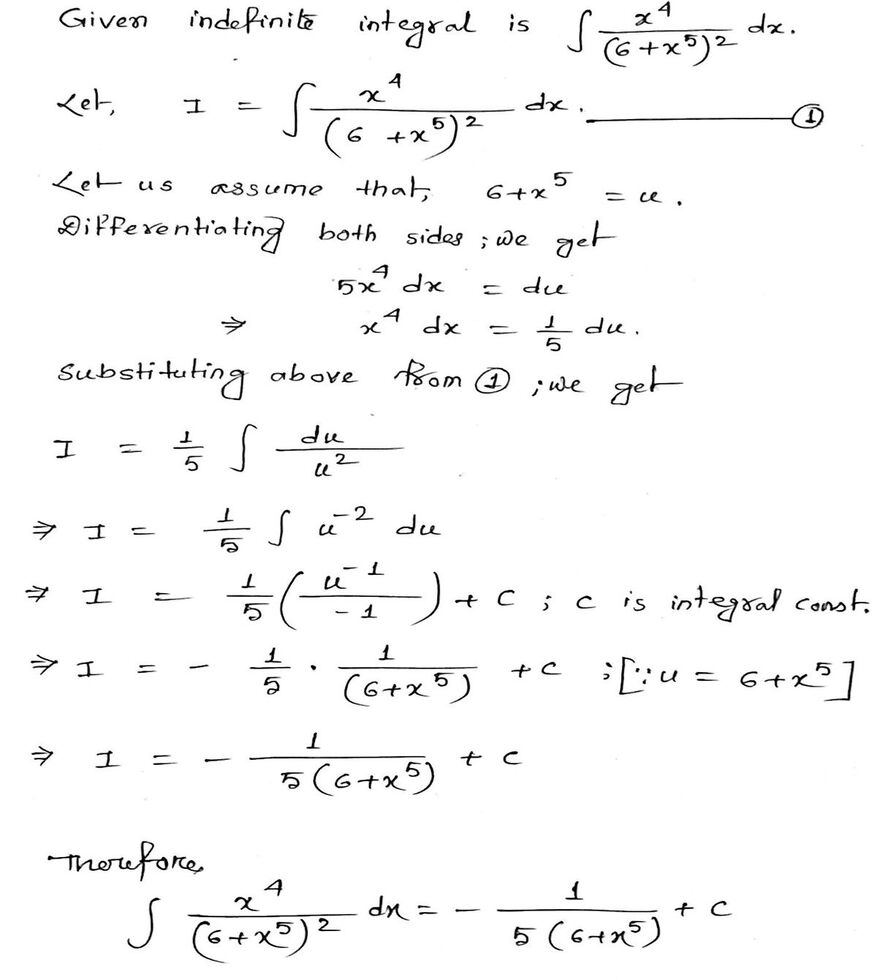 Given indefinite integral is ∫ x⁴/(6+x⁵)² dx.
Let, I = ∫ x⁴/(6+x⁵)² dx. ——— ①
Let us assume that, 6+x⁵ = u.
Differentiating both sides; we get
5x⁴ dx = du
⇒ x⁴ dx = 1/5 du.
Substituting above from ①; we get
I = 1/5 ∫ du/u²
⇒ I = 1/5 ∫ u⁻² du
⇒ I = 1/5 (u⁻¹/-1) + C; c is integral const.
⇒ I = - 1/5 · 1/(6+x⁵) + c ; [∵ u = 6+x⁵]
⇒ I = - 1/5(6+x⁵) + c
Therefore,
∫ x⁴/(6+x⁵)² dx = - 1/5(6+x⁵) + c